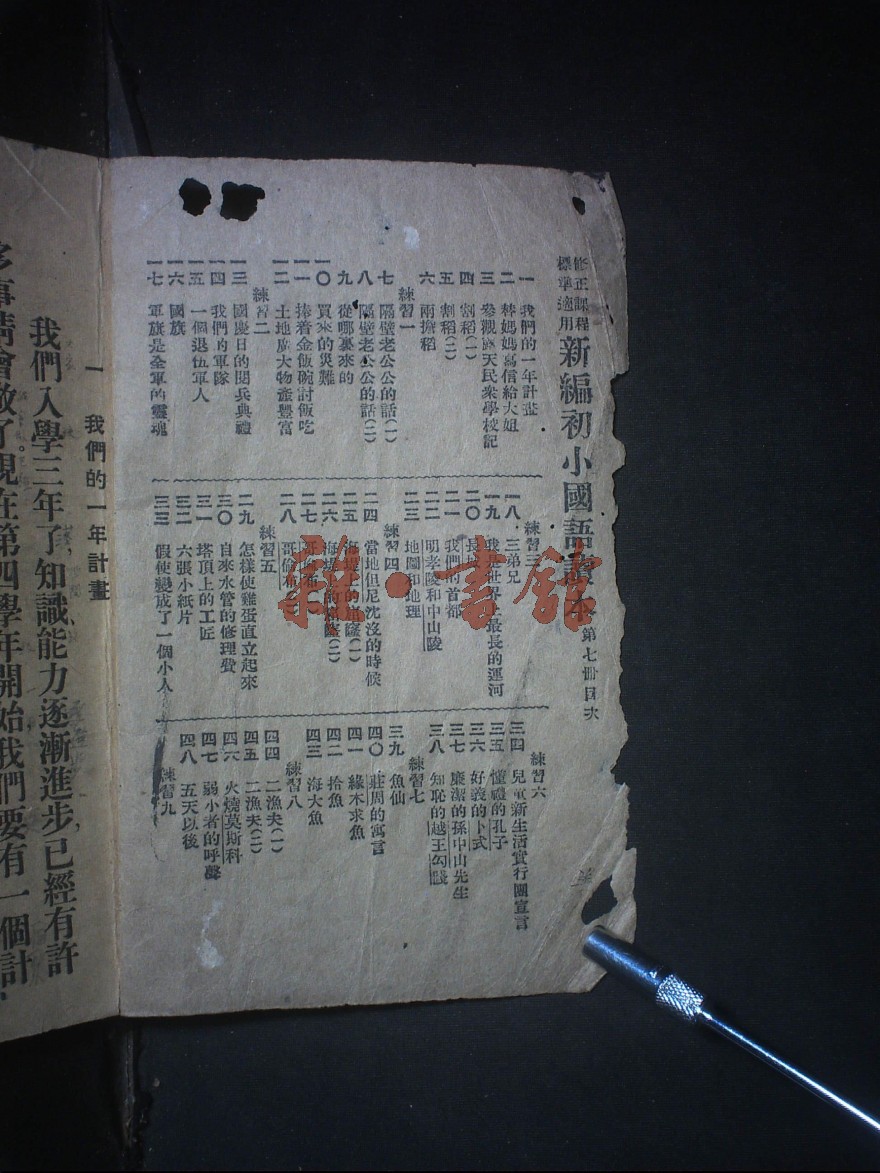 修正課程
標準適用
新編初小國語讀本 第七冊目次
一 我們的一年計畫
二 替媽媽寫信給大姐
三 參觀露天民衆學校記
四 割稻(一)
五 割稻(二)
六 兩擔稻
練習一
七 隔壁老公公的話(一)
八 隔壁老公公的話(二)
九 從哪裏來的
一〇 買來的災難
一一 捧着金飯碗討飯吃
一二 土地廣大物產豐富
練習二
一三 國慶日的閱兵典禮
一四 我們的軍隊
一五 一個退伍軍人
一六 國旗
一七 軍旗是全軍的靈魂
練習三
一八 三弟兄
一九 我是世界上最長的運河
二〇 長城
二一 我們的首都
二二 明孝陵和中山陵
二三 地圖和地理
練習四
二四 當地但尼沈沒的時候
二五 海堤上的崩窿(一)
二六 海堤上的崩窿(二)
二七 哥倫布
二八 哥倫布
練習五
二九 怎樣使雞蛋直立起來
三〇 自來水管的修理費
三一 塔頂上的工匠
三二 六張小紙片
三三 假使變成了一個小人
練習六
三四 兒童新生活實行團宣言
三五 懂禮的孔子
三六 好義的卜式
三七 廉潔的孫中山先生
三八 知恥的越王勾踐
練習七
三九 魚仙
四〇 莊周的寓言
四一 緣木求魚
四二 拾魚
四三 海大魚
練習八
四四 二漁夫(一)
四五 二漁夫(二)
四六 火燒莫斯科
四七 弱小者的呼聲
四八 五天以後
練習九
一 我們的一年計畫
我們入學三年了,知識能力逐漸進步,已經有許
多事情會做了。現在第四學年開始,我們要有一個計
雜·書館